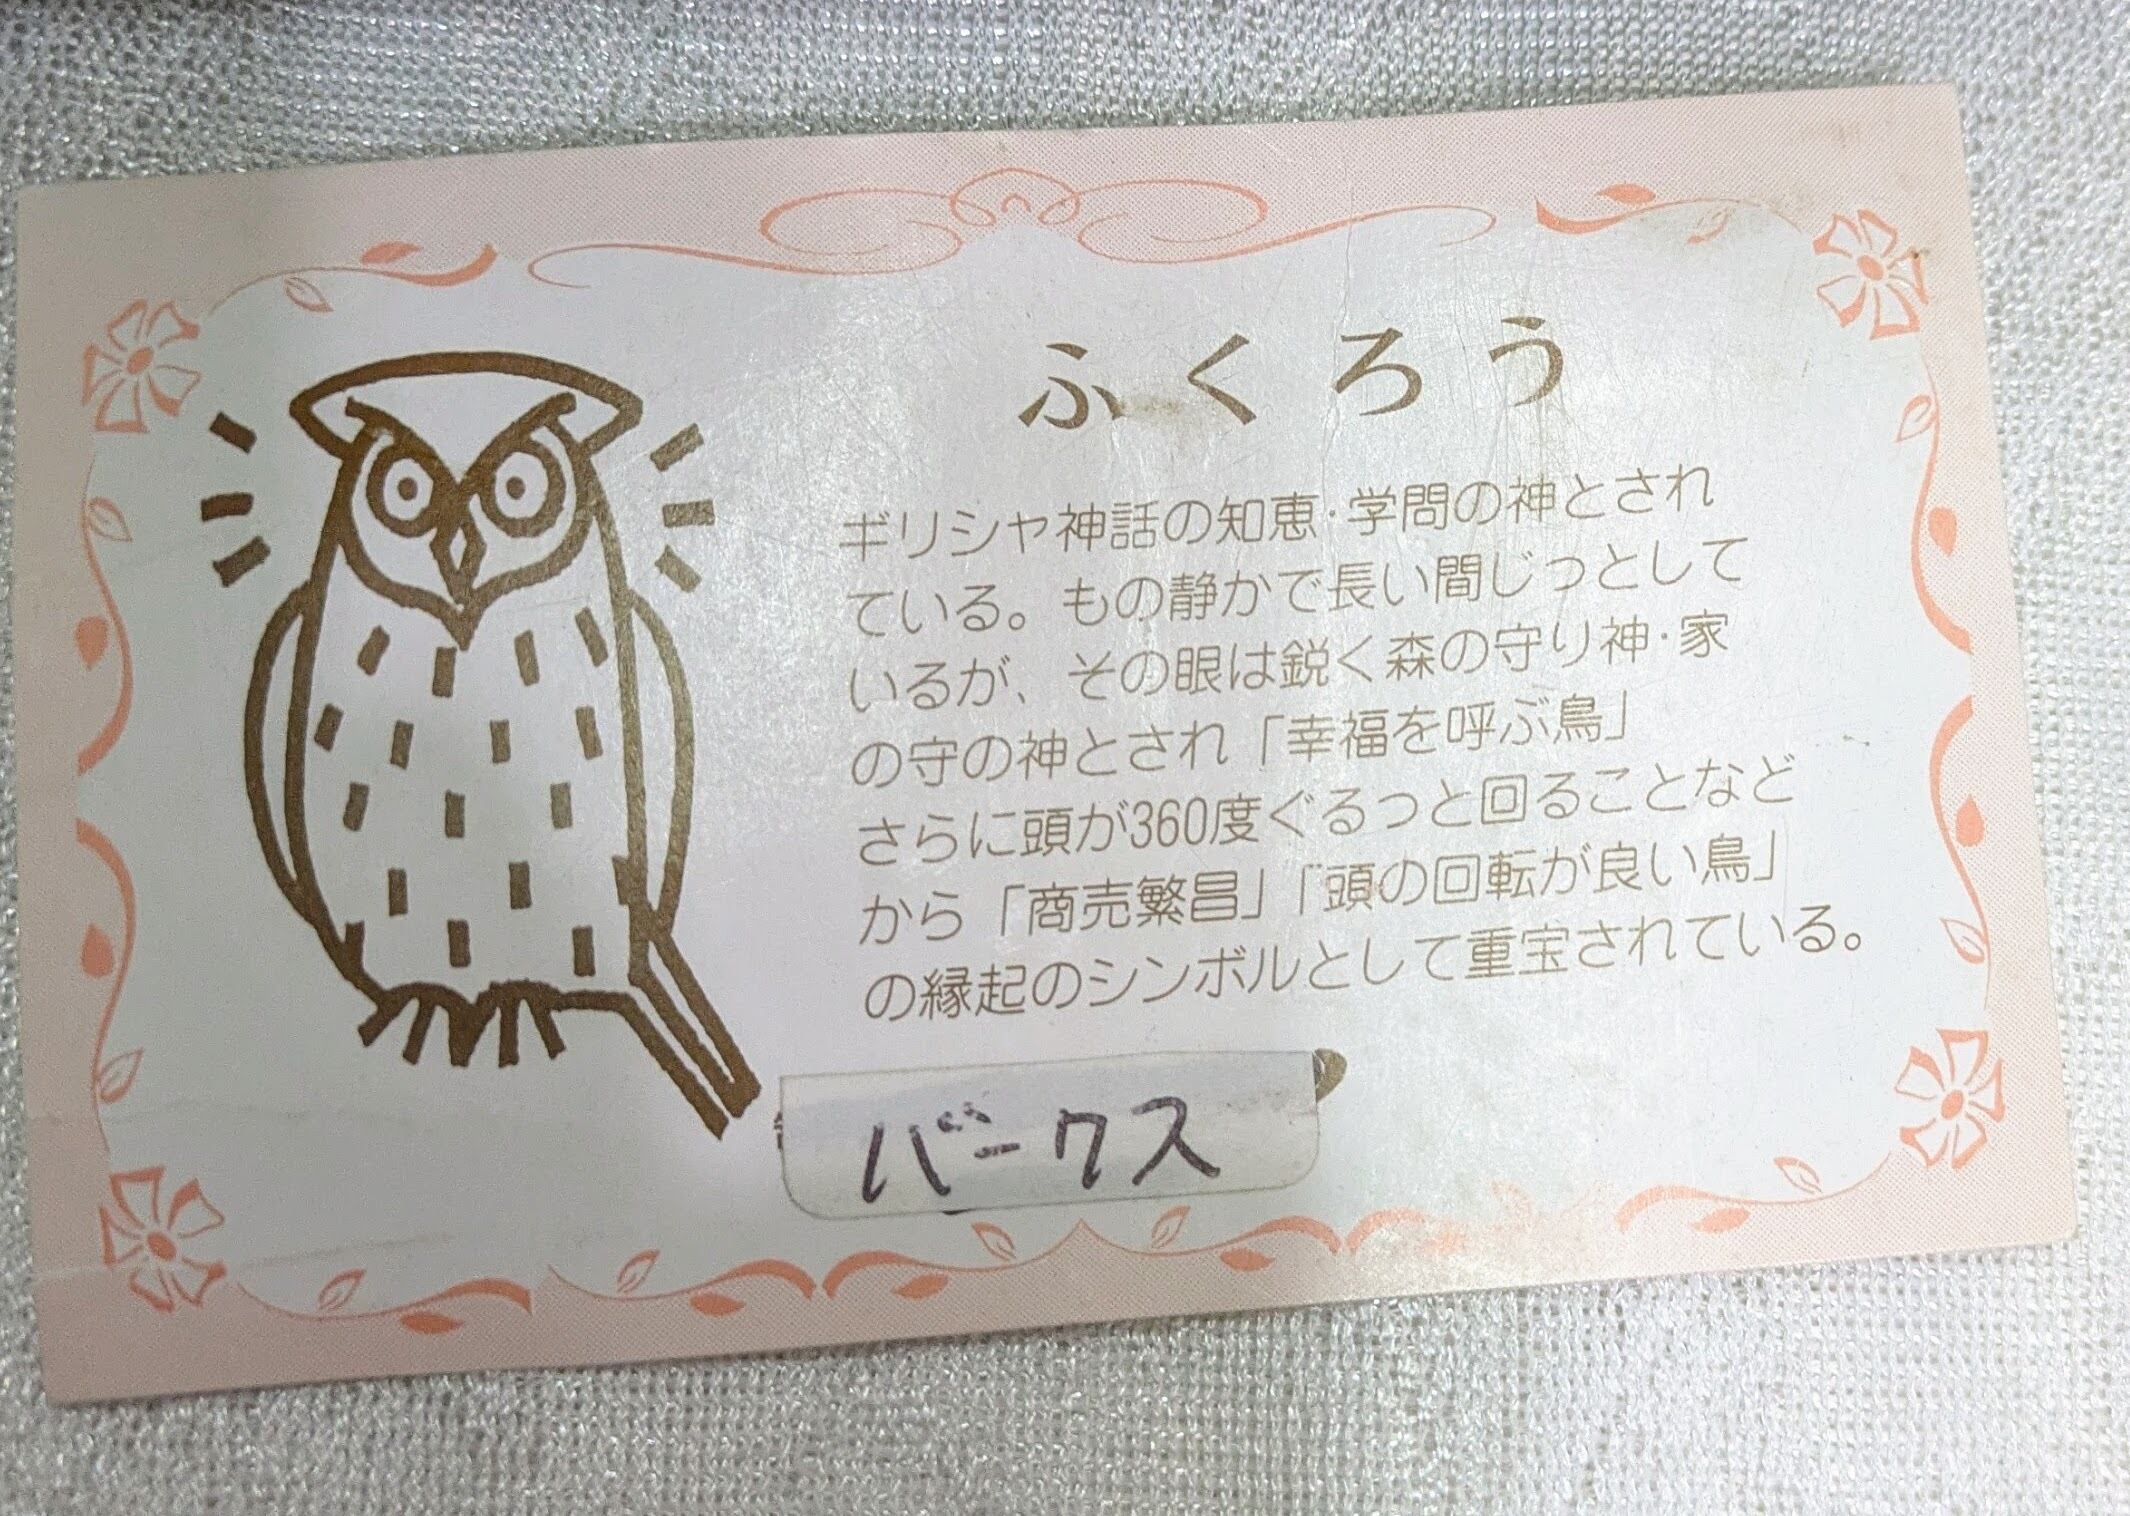 ふくろう
ギリシャ神話の知恵·学問の神とされ
ている。もの静かで長い間じっとして
いるが、その眼は鋭く森の守り神·家
の守の神とされ「幸福を呼ぶ鳥」
さらに頭が360度ぐるっと回ることなど
から「商売繁昌」「頭の回転が良い鳥」
の縁起のシンボルとして重宝されている。
バークス